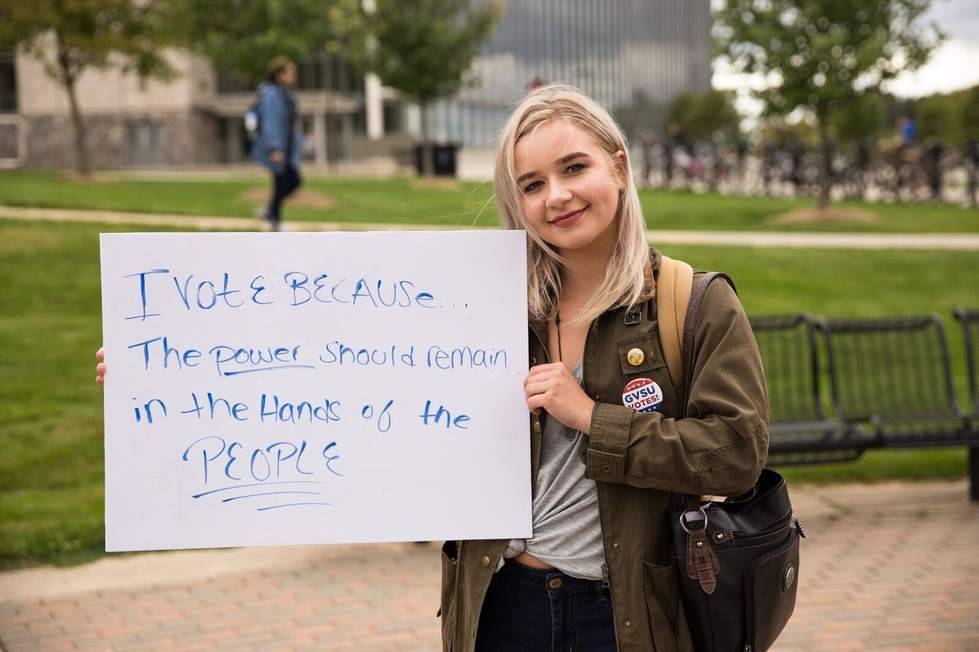 I VOTE BECAUSE...
The power should remain
in the Hands of the
PEOPLE
GVSU
VOTES!